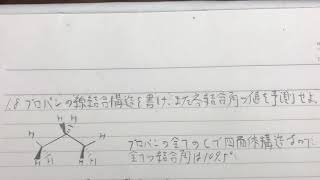 1.8 プロパンの線結合構造を書け。また各結合角の値を予測せよ。
H H
H H
H H H H
プロパンの全てのCで四面体構造なので
全ての結合角は109.5°